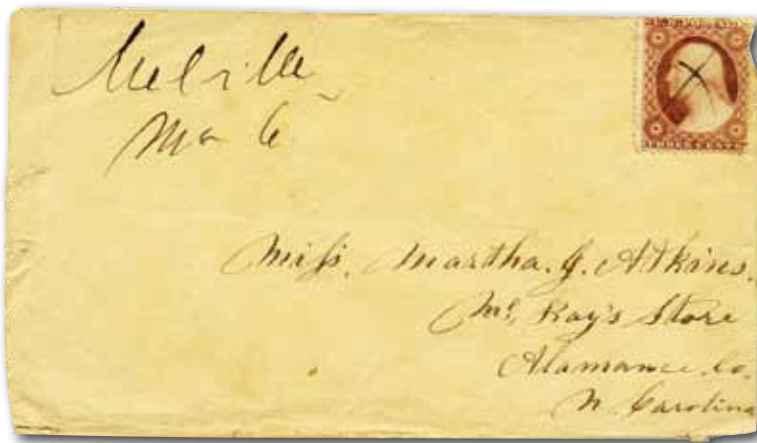 Melville
Ma 6
THREE CENTS
Miss. Martha. J. Atkins.
Mc, Ray's Store
Alamance. Co.
N. Carolina